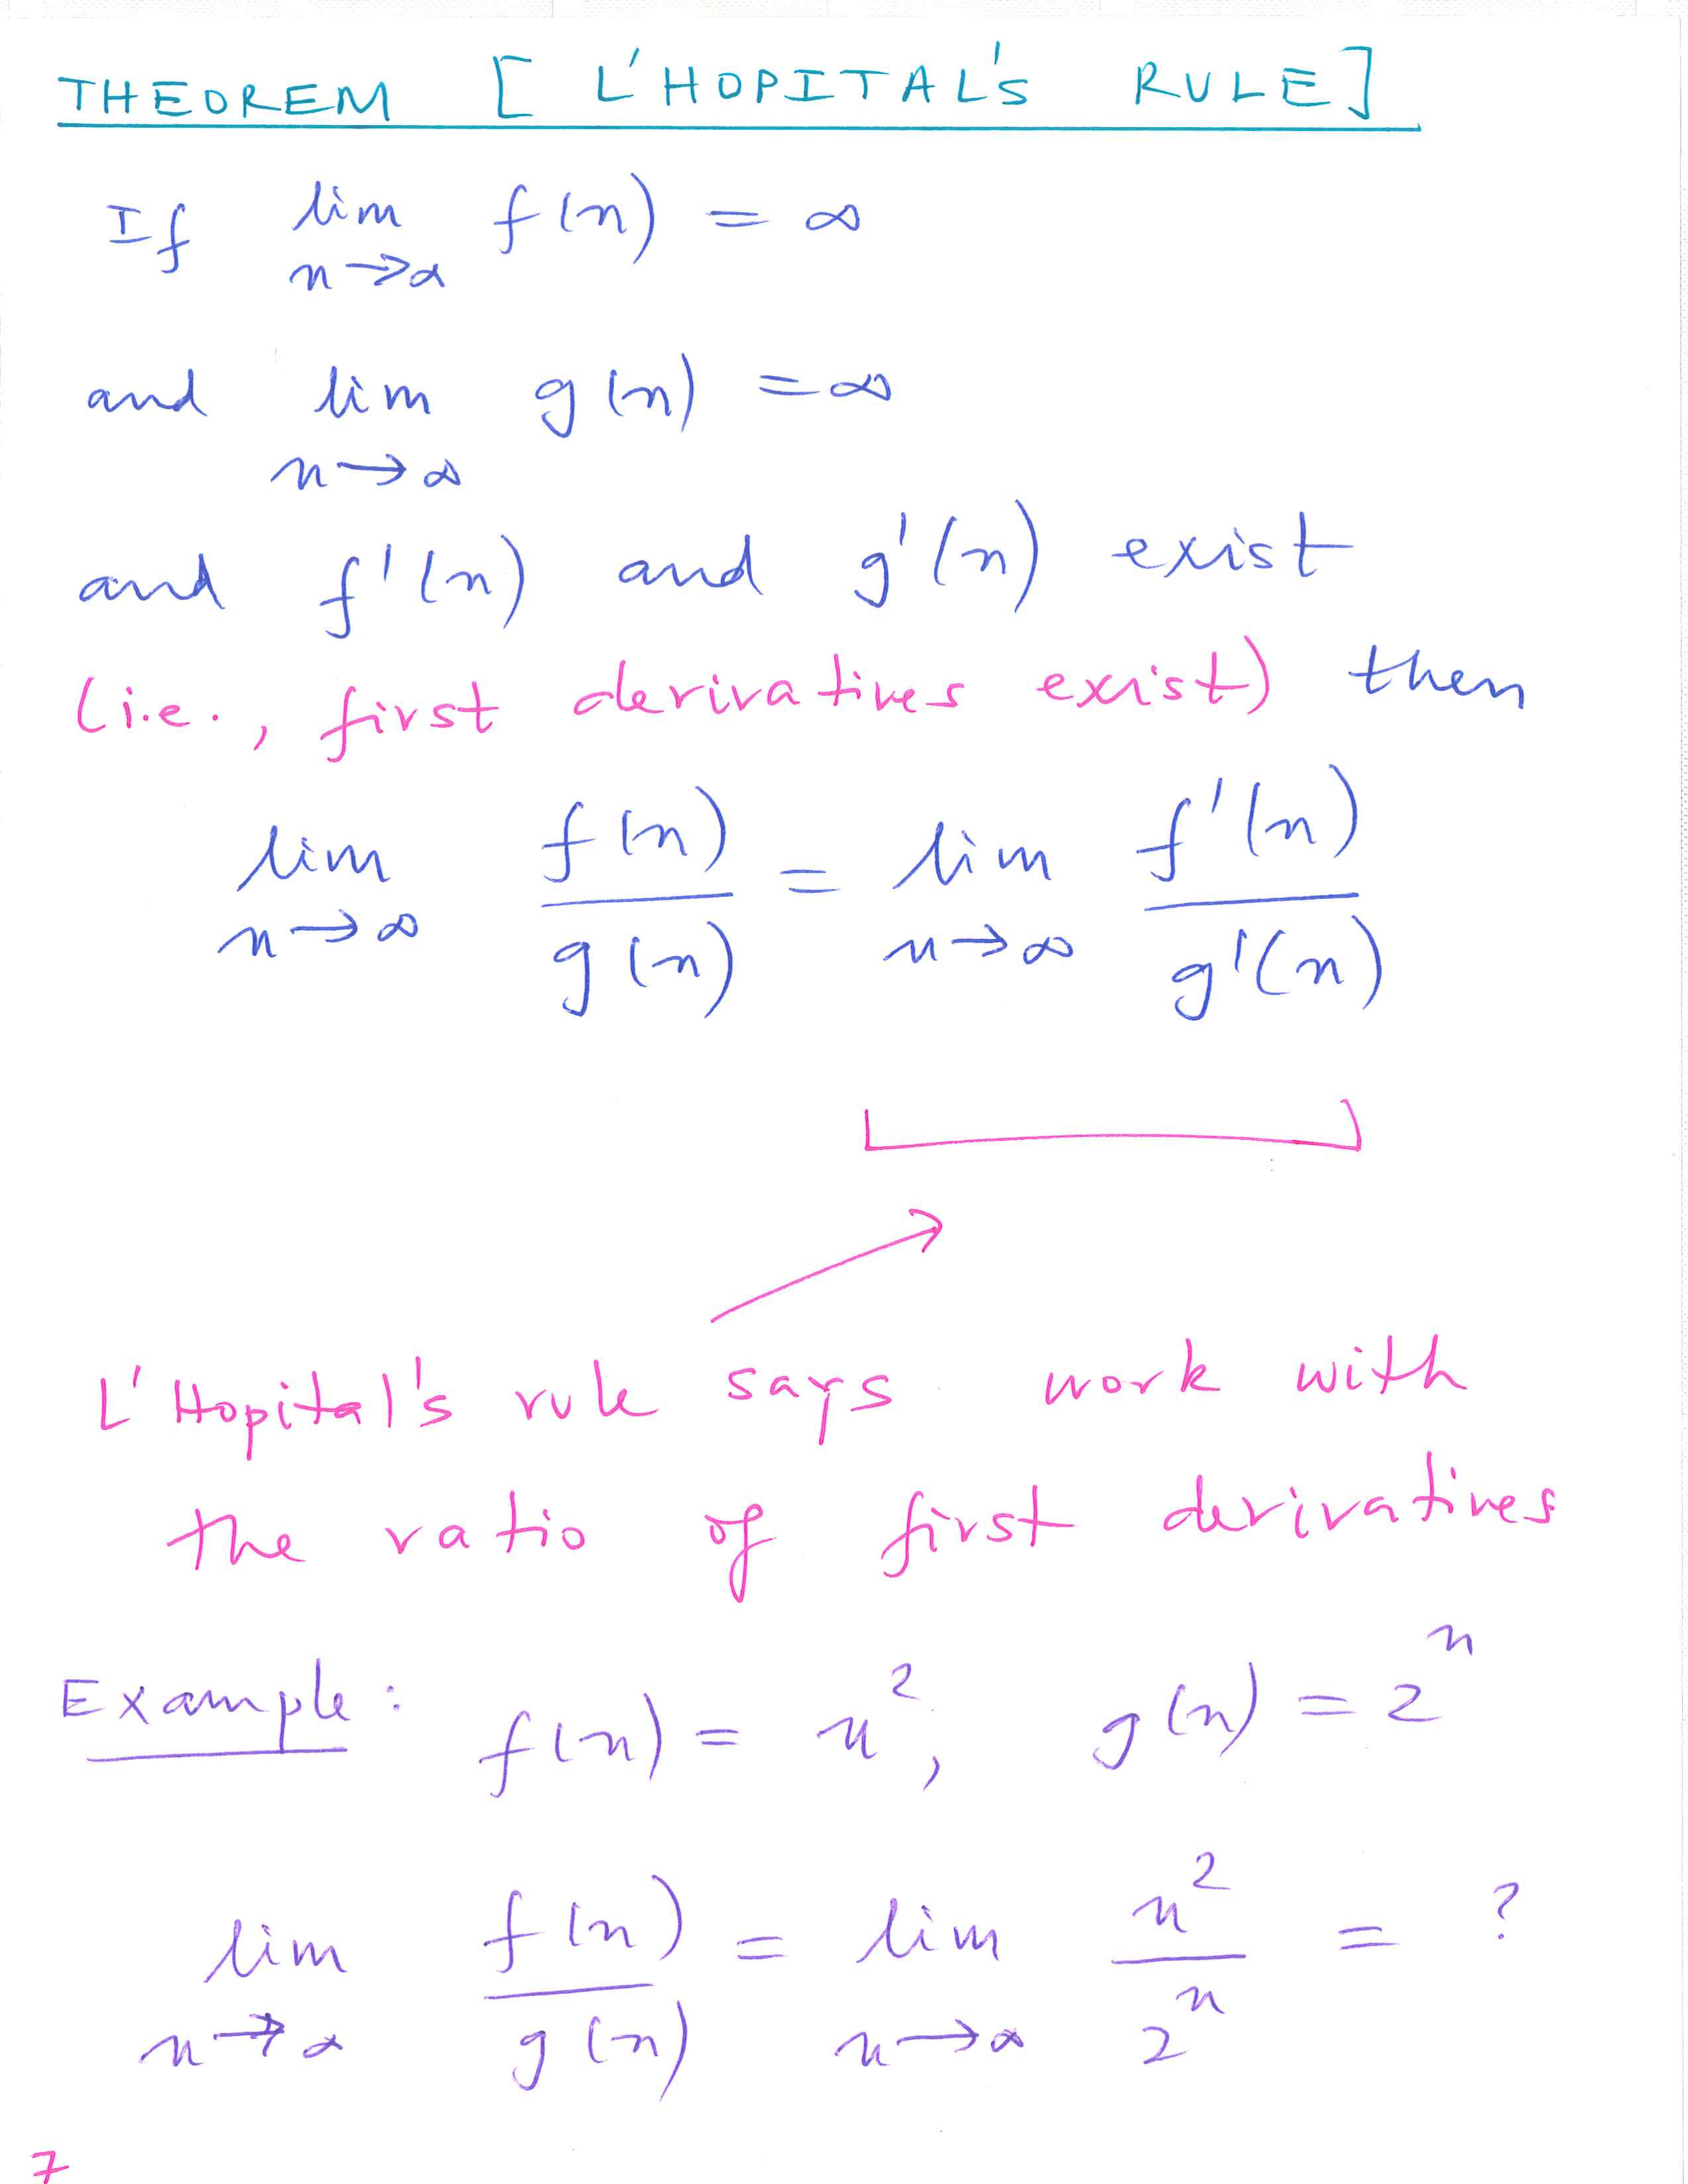 THEOREM [L'HOPITAL'S RULE]
If lim f(n) = ∞
n→∞
and lim g(n) = ∞
n→∞
and f'(n) and g'(n) exist
(i.e., first derivatives exist) then
lim f(n)/g(n) = lim f'(n)/g'(n)
n→∞ n→∞
L'Hopital's rule says work with
the ratio of first derivatives
Example: f(n) = n², g(n) = 2ⁿ
lim f(n)/g(n) = lim n²/2ⁿ = ?
n→∞ n→∞
7